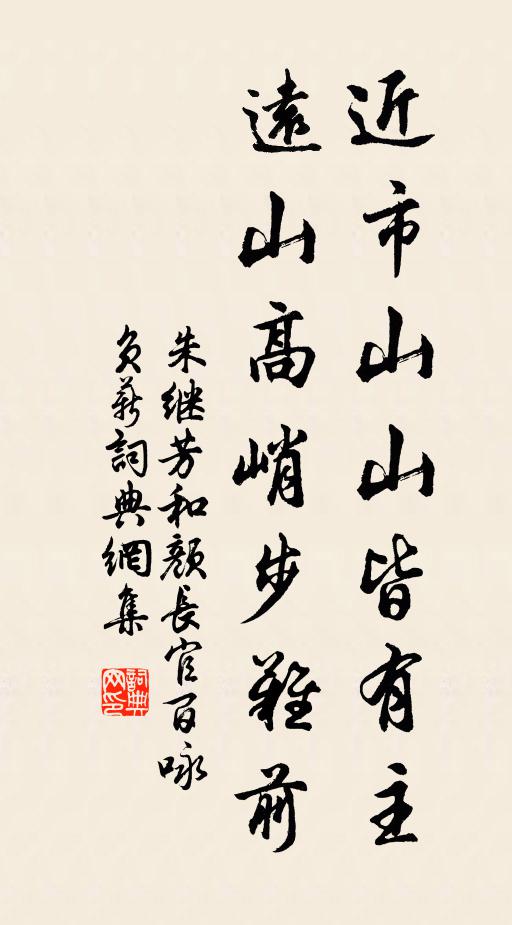 近市山山皆有主
遠山高峭步難前
朱继芳和顔長官百咏
負薪詞典網集
詞典网印